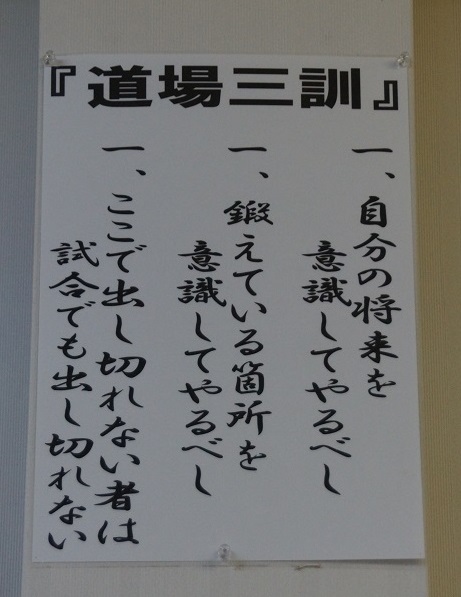 『道場三訓』
一、自分の将来を
意識してやるべし
一、鍛えている箇所を
意識してやるべし
一、ここで出し切れない者は
試合でも出し切れない